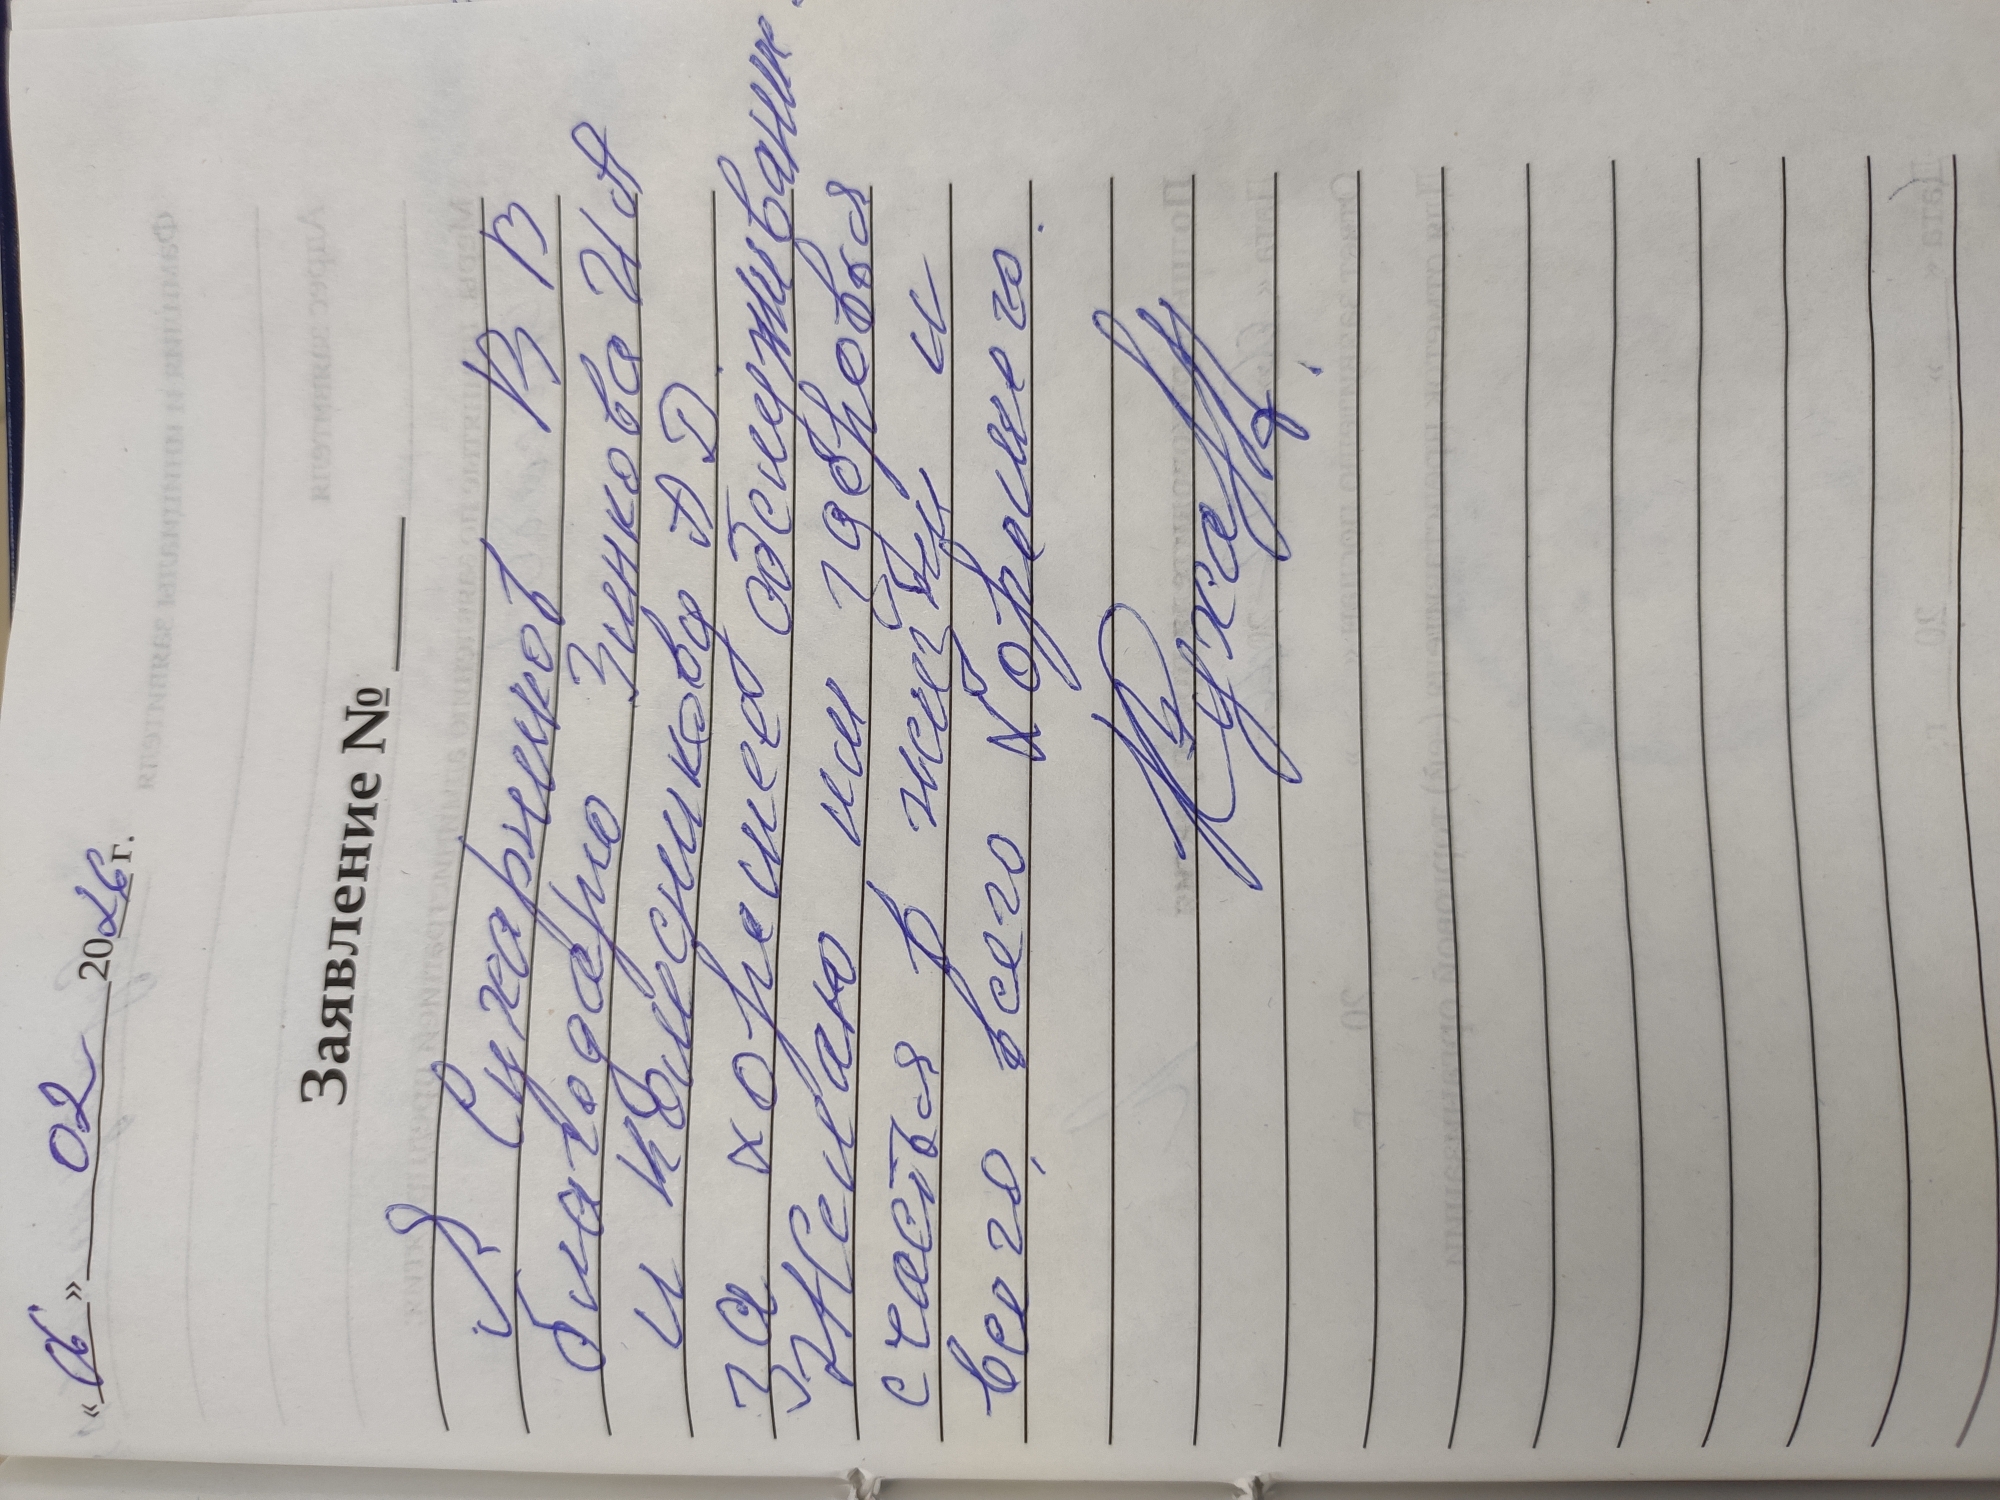 «06» 02 2026 г.
Заявление № ____
Я Сухаруков В В
благодарю Зинкова И А
и Колесникова А Д.
за хорошее обслуживани
Желаю им здоровья
счастья в жизни и
всего, всего хорошего.